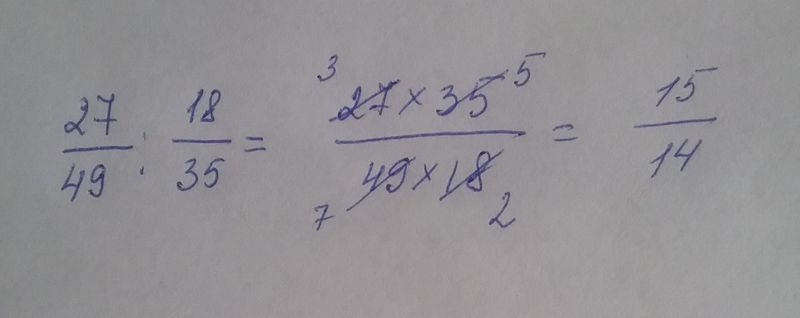 27/49 : 18/35 = 3 27 × 35 5 / 49 × 18 7 2 = 15/14